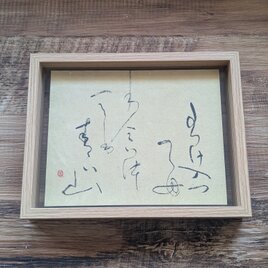 わけ入つ
ても
わけ入つ
ても
青い山